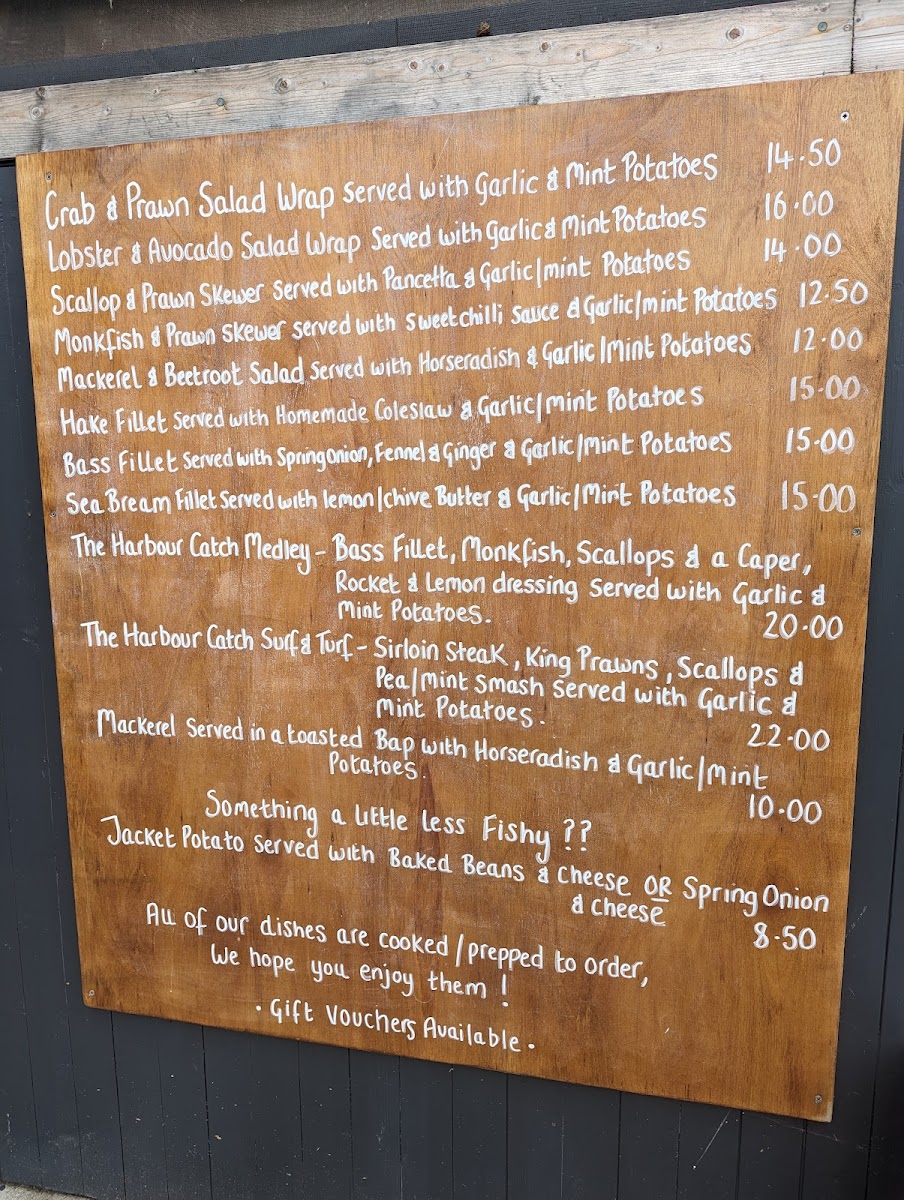 Crab & Prawn Salad Wrap Served with Garlic & Mint Potatoes 14.50
Lobster & Avocado Salad Wrap Served with Garlic & Mint Potatoes 16.00
Scallop & Prawn Skewer Served with Pancetta & Garlic/mint Potatoes 14.00
Monkfish & Prawn Skewer Served with Sweetchilli Sauce & Garlic/mint Potatoes 12.50
Mackerel & Beetroot Salad Served with Horseradish & Garlic/Mint Potatoes 12.00
Hake Fillet Served with Homemade Coleslaw & Garlic/mint Potatoes 15.00
Bass Fillet Served with Spring onion, Fennel & Ginger & Garlic/Mint Potatoes 15.00
Sea Bream Fillet Served with lemon/chive Butter & Garlic/Mint Potatoes 15.00
The Harbour Catch Medley - Bass Fillet, Monkfish, Scallops & a Caper,
Rocket & Lemon dressing Served with Garlic &
Mint Potatoes. 20.00
The Harbour Catch Surf & Turf - Sirloin Steak, King Prawns, Scallops &
Pea/Mint Smash Served with Garlic &
Mint Potatoes. 22.00
Mackerel Served in a toasted Bap with Horseradish & Garlic/mint
Potatoes. 10.00
Something a little less Fishy ??
Jacket Potato Served with Baked Beans & cheese OR Spring Onion
& cheese 8.50
All of our dishes are cooked/prepped to order,
We hope you enjoy them !
• Gift Vouchers Available •